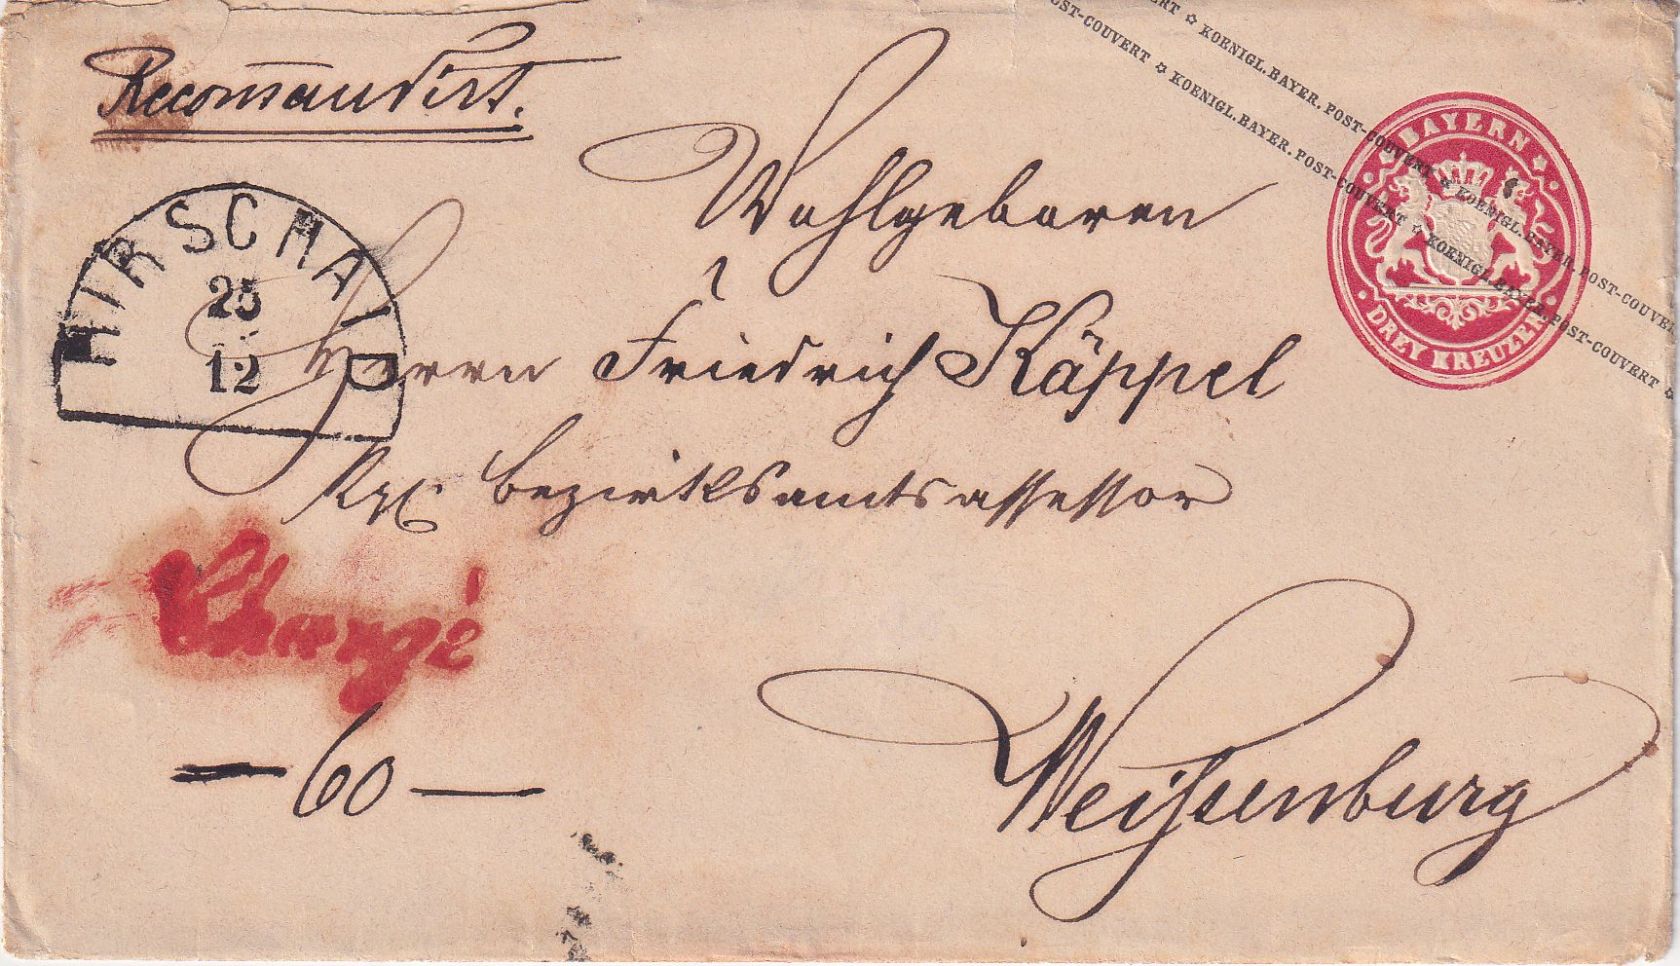 Recomandirt.
KOENIGL. BAYER. POST-COUVERT ✩ KOENIGL. BAYER. POST-COUVERT
POST-COUVERT ✩ KOENIGL. BAYER. POST-COUVERT ✩ KOENIGL. BAYER. POST-COUVERT
BAYERN
DREY KREUZER
HIRSCHAID
25
12
Wohlgeboren
Herrn Friedrich Käppel
Kgl. Bezirksamtsassessor
Chargé
— 60 —
Weißenburg